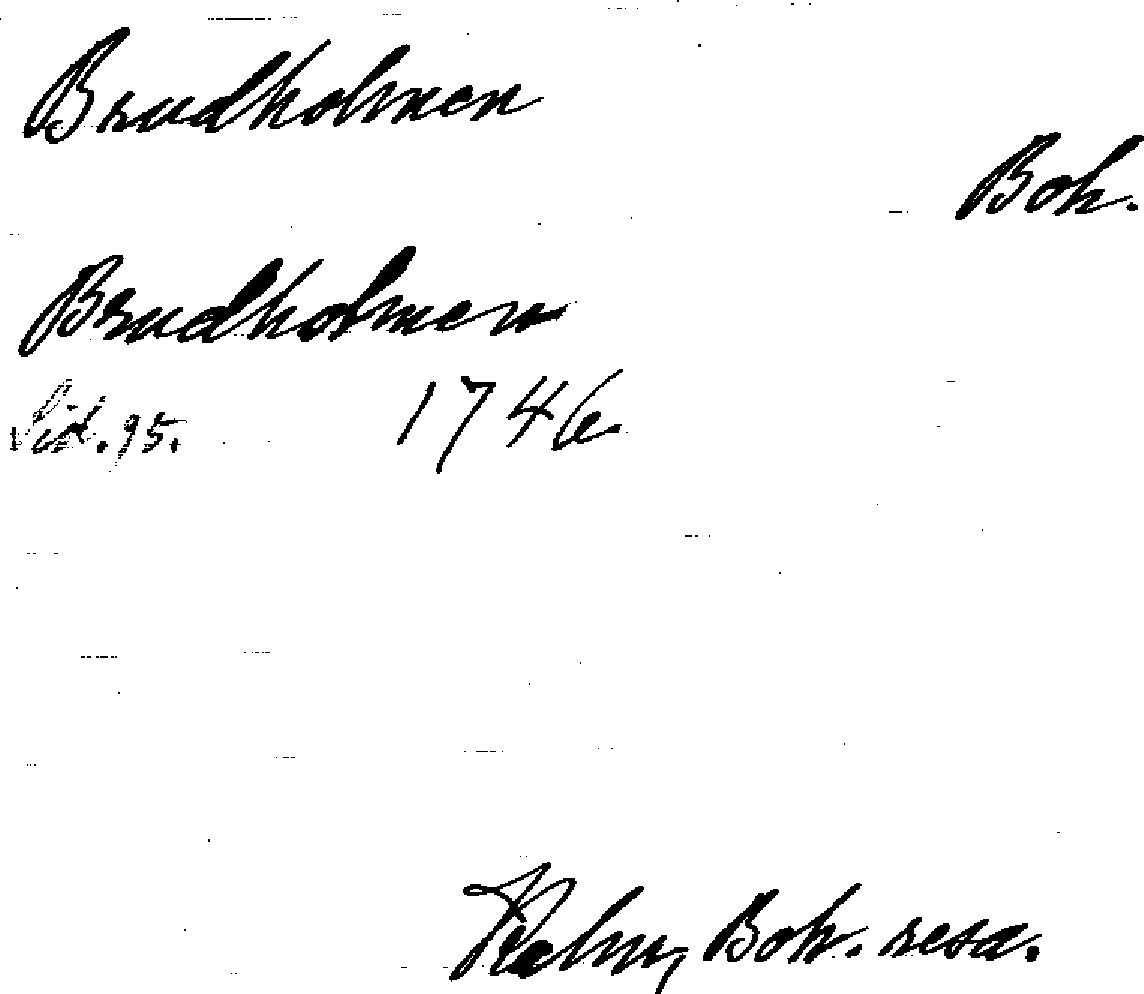 Brudholmen
Boh.
Brudholmen
Sid. 95. 1746
Kalm, Boh. resa.